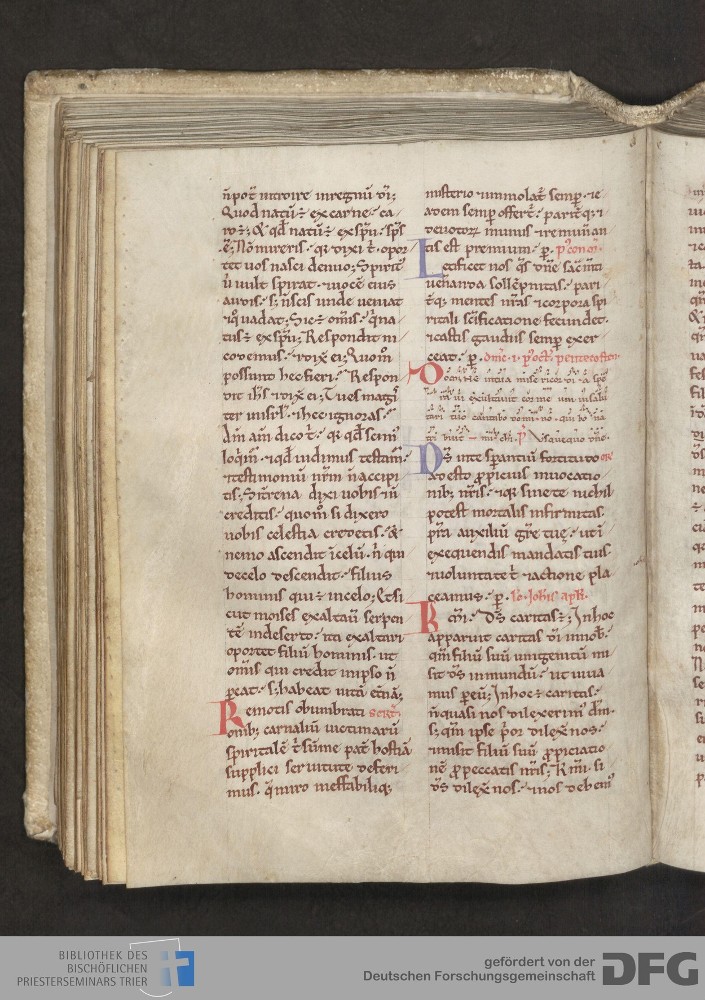 n̄ pot̄ introire in regnū dī;
Quod natū ÷ ex carne · ca
ro ÷; & qd̄ natū ÷ ex sp̄u · sp̄s
÷; Nō mireris · qꝛ dixi t̄ · opor
tet vos nasci denuo; Spirit᷒
ū vult spirat · vocē eius
audis · s; n̄ scis unde veniat
⁊ q̊ vadat; Sic ÷ om̄is · q̇ na
tus ÷ ex sp̄u; Respondit ni
codemus · ⁊ dix̄ ei; Quom̊
possunt hec fieri · Respon
dit ih̄s ⁊ dix̄ ei; Tu es magr̄
⁊ hec ignoras ·
Am̄ am̄ dico t̄ · qꝛ qd̄ scim᷒
loq̇m᷒ · ⁊ qd̄ vidimus testam᷒ ·
⁊ testimoniū nr̄m n̄ accipi
tis; Si t̄rena dixi vobis ⁊ n̄
creditis · quom̊ si dixero
vobis celestia credetis · &
nemo ascendit ī celū · n̄ qui
de celo descendit · filius
hominis qui ÷ in celo; Et si
cut moises exaltau̇ serpen
tē in deserto · ita exaltari
oportet filiū hominis · ut
om̄is qui credit in ipso n̄
ꝑeat · s; habeat vitā et̄nā;
Remotis obumbrati
onib; carnaliū victimarū
spiritalē t̄ sūme pat̄ hostiā
supplici servitute deferi
mus · q̄ miro ineffabiliq;
misterio ⁊ immolat᷒ semꝑ · ⁊ e
adem semꝑ offert᷒ · parit̄q; ⁊
devotoꝝ munus ⁊ remun̄an
tis est premium · ꝑ.
Letificet nos q̄s dn̄e sac̄m̄ti
veneranda sollēpnitas · pari
t̄q; mentes nr̄as ⁊ corpora spi
ritali sc̄ificatione fecundet ·
⁊ castis gaudiis semꝑ exer
ceat · ꝑ. Dn̄ic · i · p᷒ oct̄ · pentecosten
Domine in tua misericordia spe
ravi exultavit cor meum in saluta
ri tuo cantabo domino qui bona
Usquequo dn̄e ·
Ds̄ in te sperantiū fortitudo
adesto ꝓpicius invocatio
nib; nr̄is · ⁊ qꝛ sine te nichil
potest mortalis infirmitas ·
pr̄a auxiliū gr̄e tuę · ut ī
exequendis mandatis tuis
⁊ voluntate t̄ ⁊ actione pla
ceamus · ꝑ. Ło · Ioh̄is apłi ·
Km̄i · Ds̄ caritas ÷; In hoc
apparuit caritas dī in nob̄ ·
qm̄ filiū suū unigenitū mi
sit ds̄ in mundū · ut viva
mus ꝑ eū; In hoc ÷ caritas ·
n̄ quasi nos dilexerim᷒ dm̄ ·
s; qm̄ ipse p̊or dilex̄ nos ·
⁊ misit filiū suū ꝓpiciatio
nē ꝓ peccatis nr̄is; Km̄i · si
ds̄ dilex̄ nos · ⁊ nos debem᷒
BIBLIOTHEK DES
BISCHÖFLICHEN
PRIESTERSEMINARS TRIER
gefördert von der
Deutschen Forschungsgemeinschaft
DFG